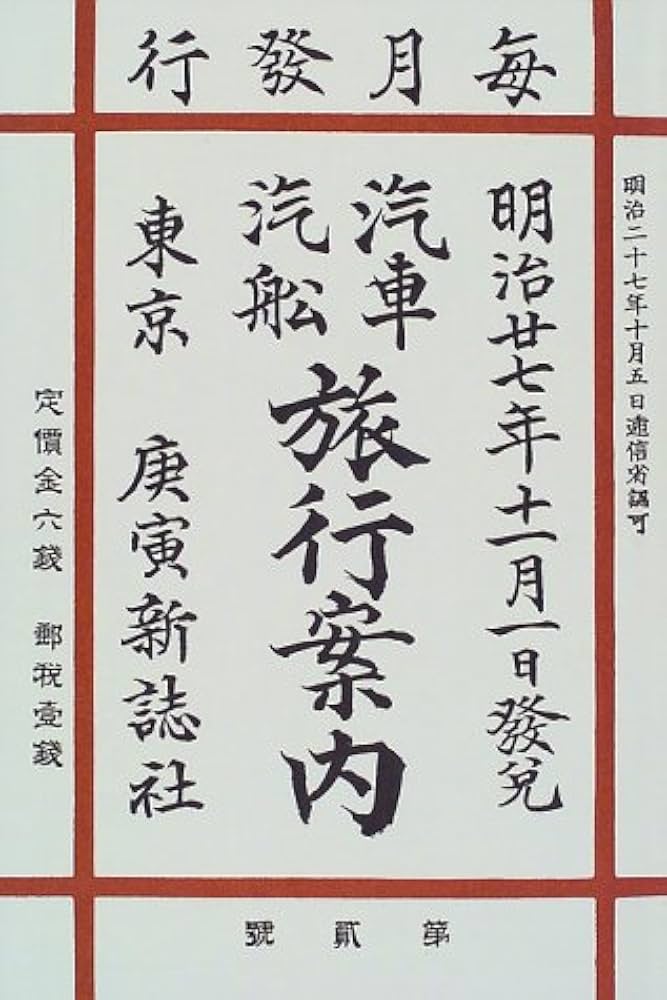 毎月發行
明治二十七年十月五日逓信省認可
明治廿七年十一月一日發兌
汽車
汽船
旅行案内
東京 庚寅新誌社
定價金六錢 郵税壹錢
第貳號